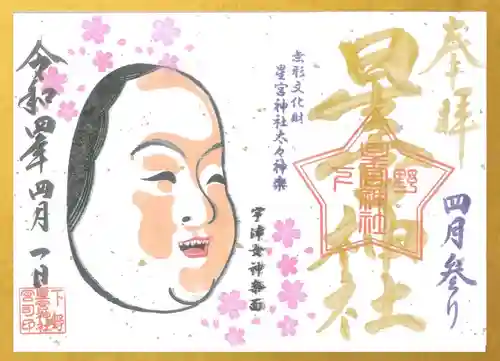 奉拝
四月参り
星宮神社
下野
星宮神社
無形文化財
星宮神社太々神楽
宇津女神楽面
令和四年四月一日
下野
星宮神社
宮司印